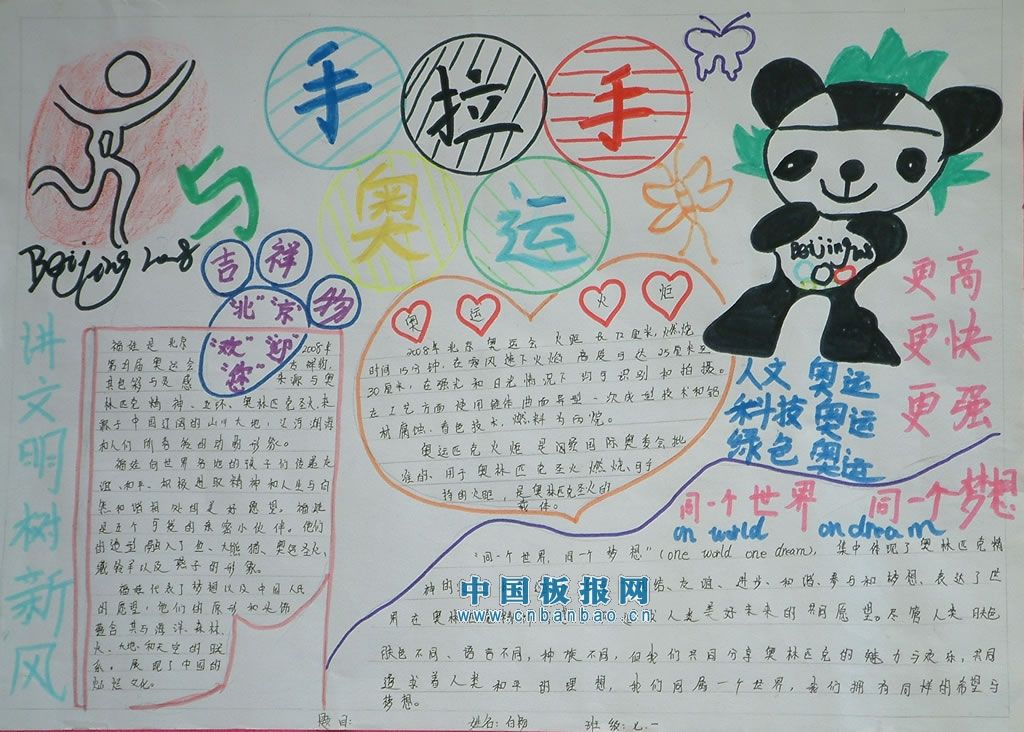 手拉手
与
奥运
Beijing 2008
吉祥物
"北" "京"
"欢" "迎"
"你"
讲文明树新风
福娃是北京 2008年
第29届奥运会 吉祥物,
其色彩与灵感 来源与奥
林匹克精神、五环、奥林匹克圣火,来
源于中国辽阔的山川大地,江河湖海
和人们所喜爱的动易形象。
福娃向世界各地的孩子们传递友
谊、和平、积极进取精神和人与自
然和谐相处的美好愿望。福娃
是五个可爱的亲密小伙伴。他们
的造型融入了鱼、大熊猫、奥运圣火,
藏羚羊以及燕子的形象。
福娃代表了梦想以及中国人民
的愿望,他们的原形和头饰
蕴含其与海洋、森林、
火、大地和天空的联
系,展现了中国的
灿烂文化。
奥运火炬
2008年北京奥运会火炬长72厘米,燃烧
时间15分钟,在零风速下火焰高度可达25厘米至
30厘米,在强光和日光情况下均可识别和拍摄。
在工艺方面使用锥体曲面异型一次成型技术和铝
材腐蚀、着色技术,燃料为丙烷。
奥运匹克火炬是
国际奥委会批
准的、用于奥林匹克圣火燃烧、可手
持的火炬,是奥林匹克圣火的
载体。
Beijing 2008
更高
更快
更强
人文奥运
科技奥运
绿色奥运
同一个世界 同一个梦想
on world on dream
"同一个世界,同一个梦想"(one world one dream),集中体现了奥林匹克精
神的
结、友谊、进步、和谐、参与和梦想,表达了世
界在奥林
人类美好未来的共同愿望。尽管人类肤色
肤色不同、语言不同,种族不同,但我们共同分享奥林匹克的魅力与欢乐,共同
追求着人类和平的理想,我们同属一个世界,我们拥有同样的希望与
梦想。
中国板报网
www.cnbanbao.cn
题目: 姓名: 白 班级: